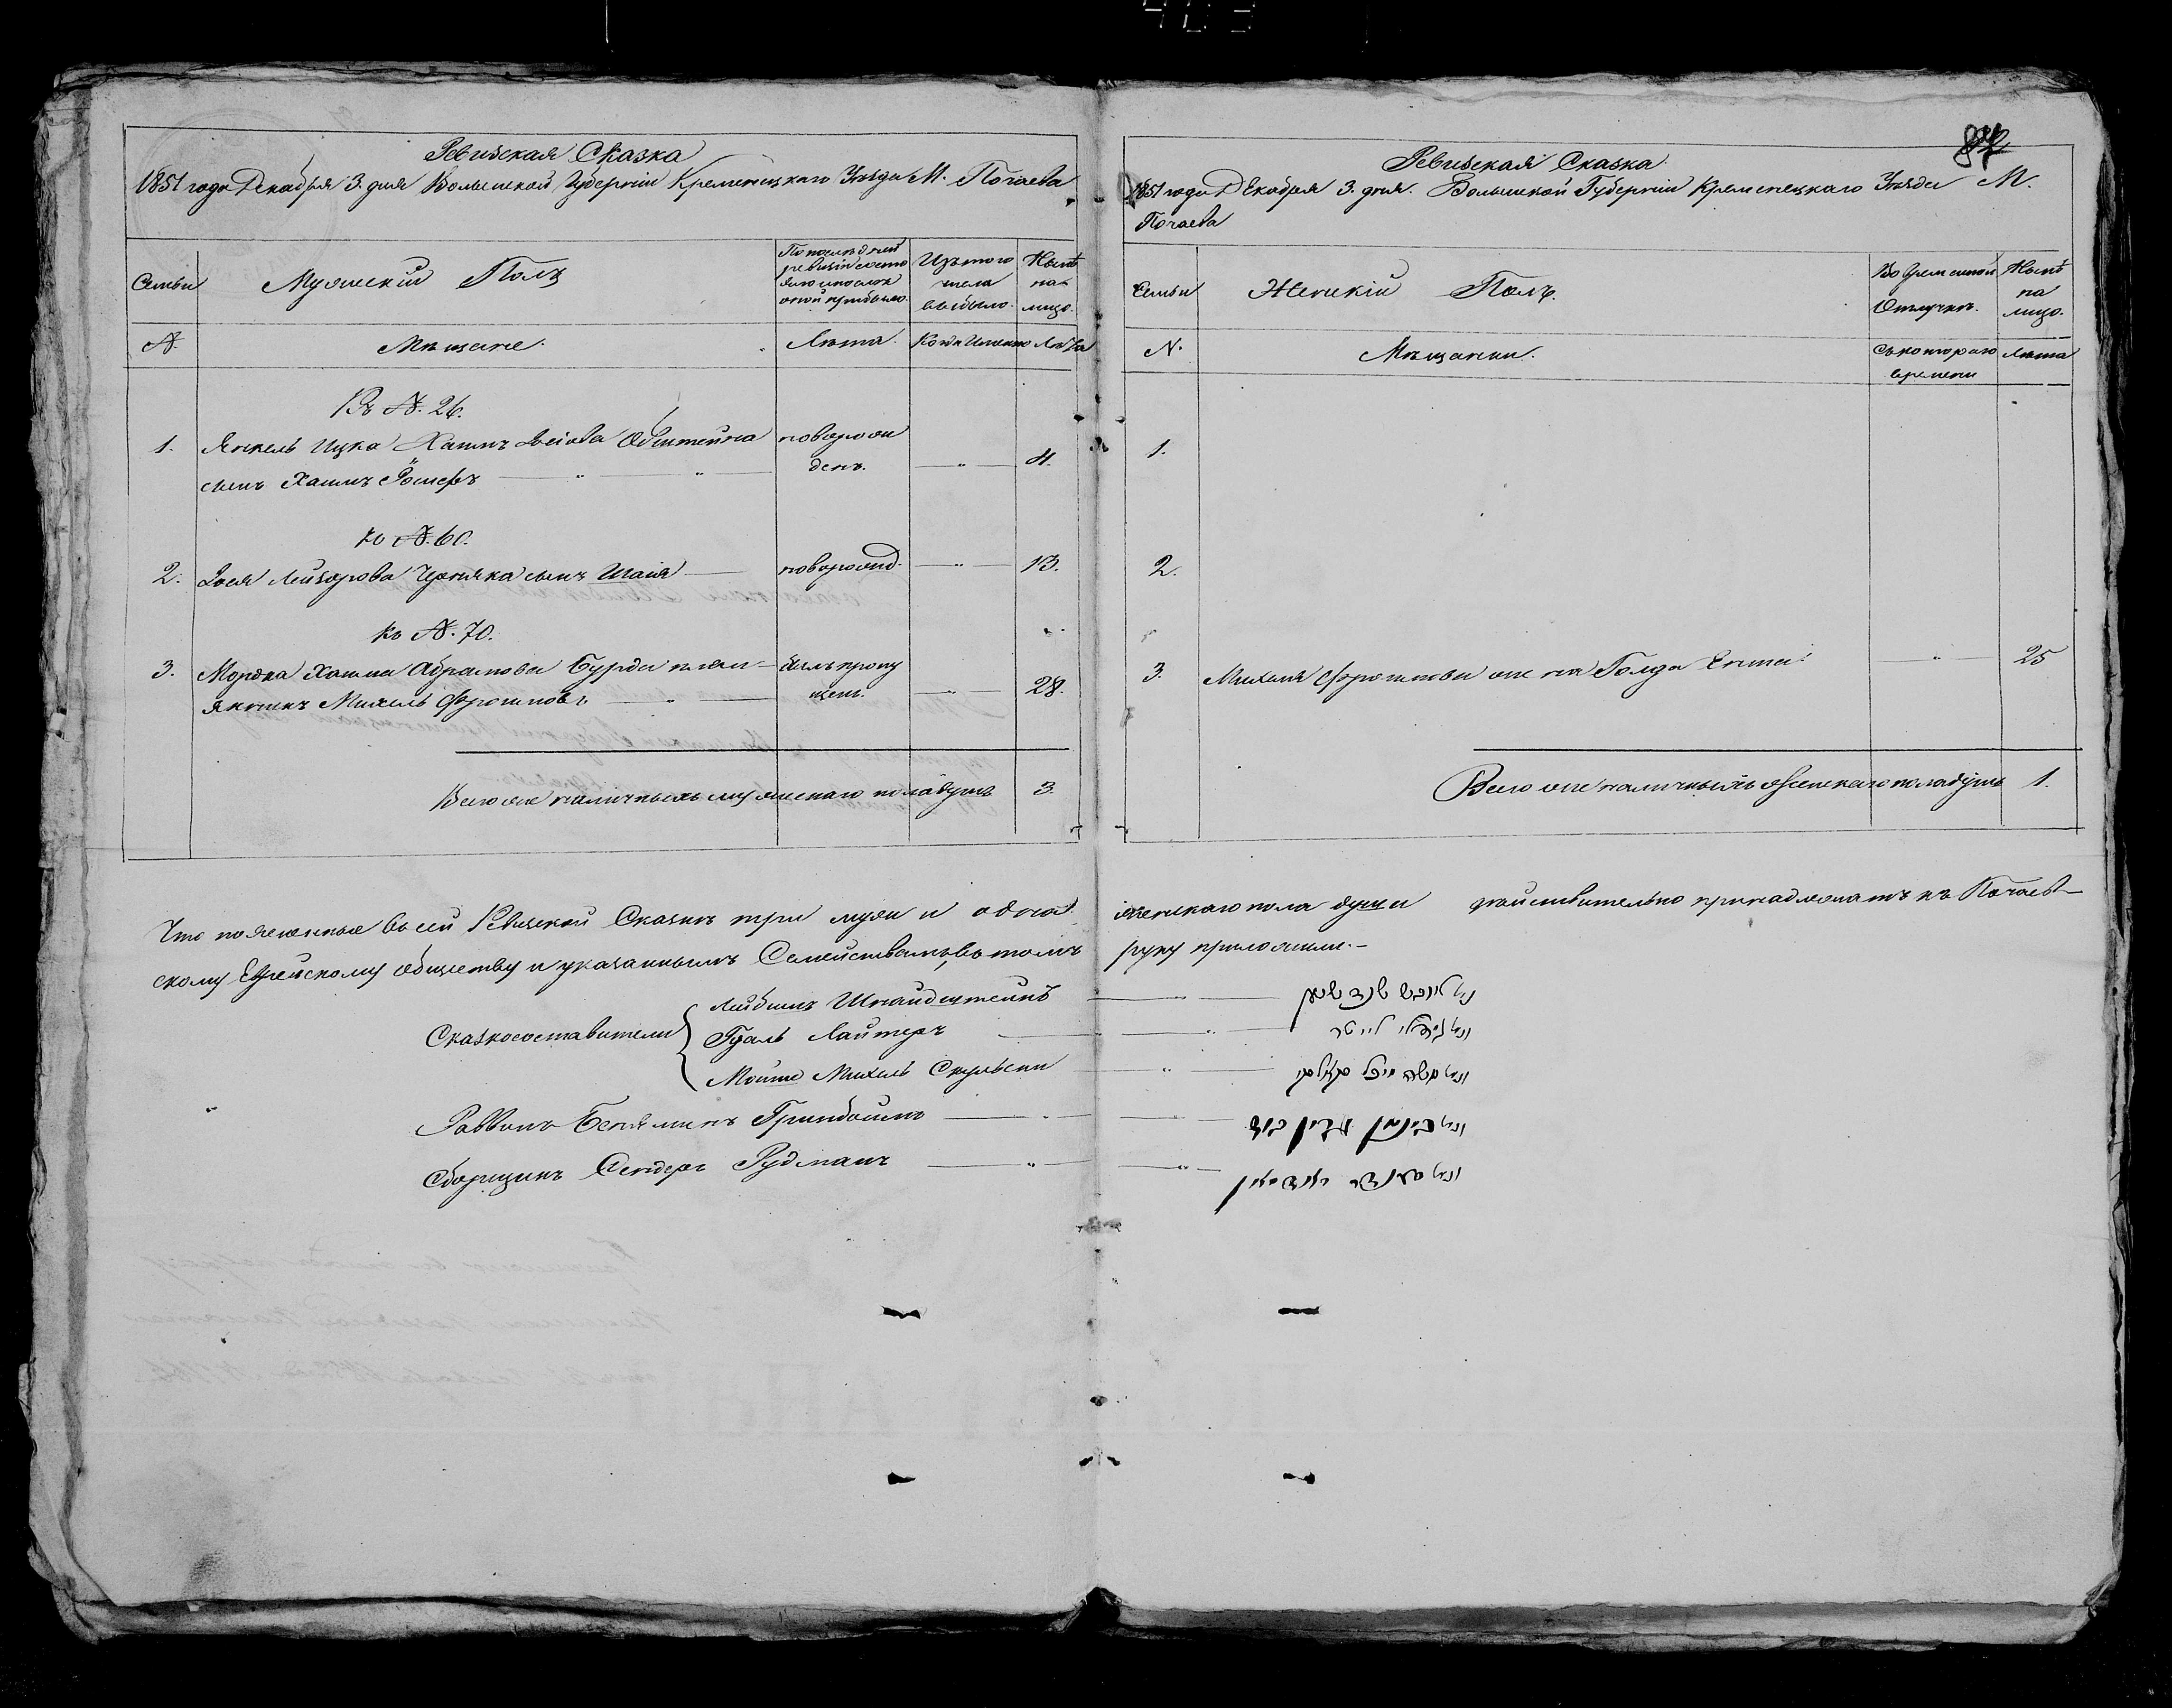 Ревизская Сказка
1851 года Декабря 3. дня Волынской Губернии Кременецкаго Уѣзда М. Почаева
Семьи
Мужескій Полъ
По послѣдней
ревизіи состо
яло и послѣ
оной прибыло.
Изъ того
числа
выбыло.
Нынѣ
на
лицо.
№.
Мѣщане.
Лѣта.
Когда Именно
Лѣта
Къ №. 26.
1. Янкель Ицка Хаимъ
новорож
сынъ Хаимъ
денъ. — " — 4.
ко №. 60.
2. Зося Лейзорова Черняка сынъ Шаія — новорожд. — " — 13.
къ №. 70.
3. Мордка Хаима Абрамова Бурды плем-
былъ пропу
янникъ Михель Фроимовъ — " —
щен. — " — 28.
Всего же наличныхъ мужескаго пола душъ 3.
842
Ревизская Сказка.
1851 года Декабря 3. дня. Волынской Губерніи Кременецкаго Уѣзда М.
Почаева
Семьи
Женскій Полъ.
Во временной
Отлучкѣ.
Нынѣ
на
лицо.
№.
Мѣщанки.
Съ котораго
времени
Лѣта
1.
2.
3. Михеля Фроимова жена Голда Ента — " — 25
Всего же наличныхъ женскаго пола душъ 1.
Что поясненные въ сей Ревизской Сказкѣ три мужи и одна женскаго пола души дѣйствительно принадлежатъ къ Почаев-
скому Еврейскому обществу и указаннымъ Семействамъ, въ томъ руку приложили.—
Сказкосоставители
Лейбишъ Шнайдштейнъ — " —
Гдаль Лайтеръ — " —
Мошко Михель Скульски — " —
Раввинъ Беніяминъ Гринбоимъ — " —
Сборщикъ Сендеръ Рудманъ — " —